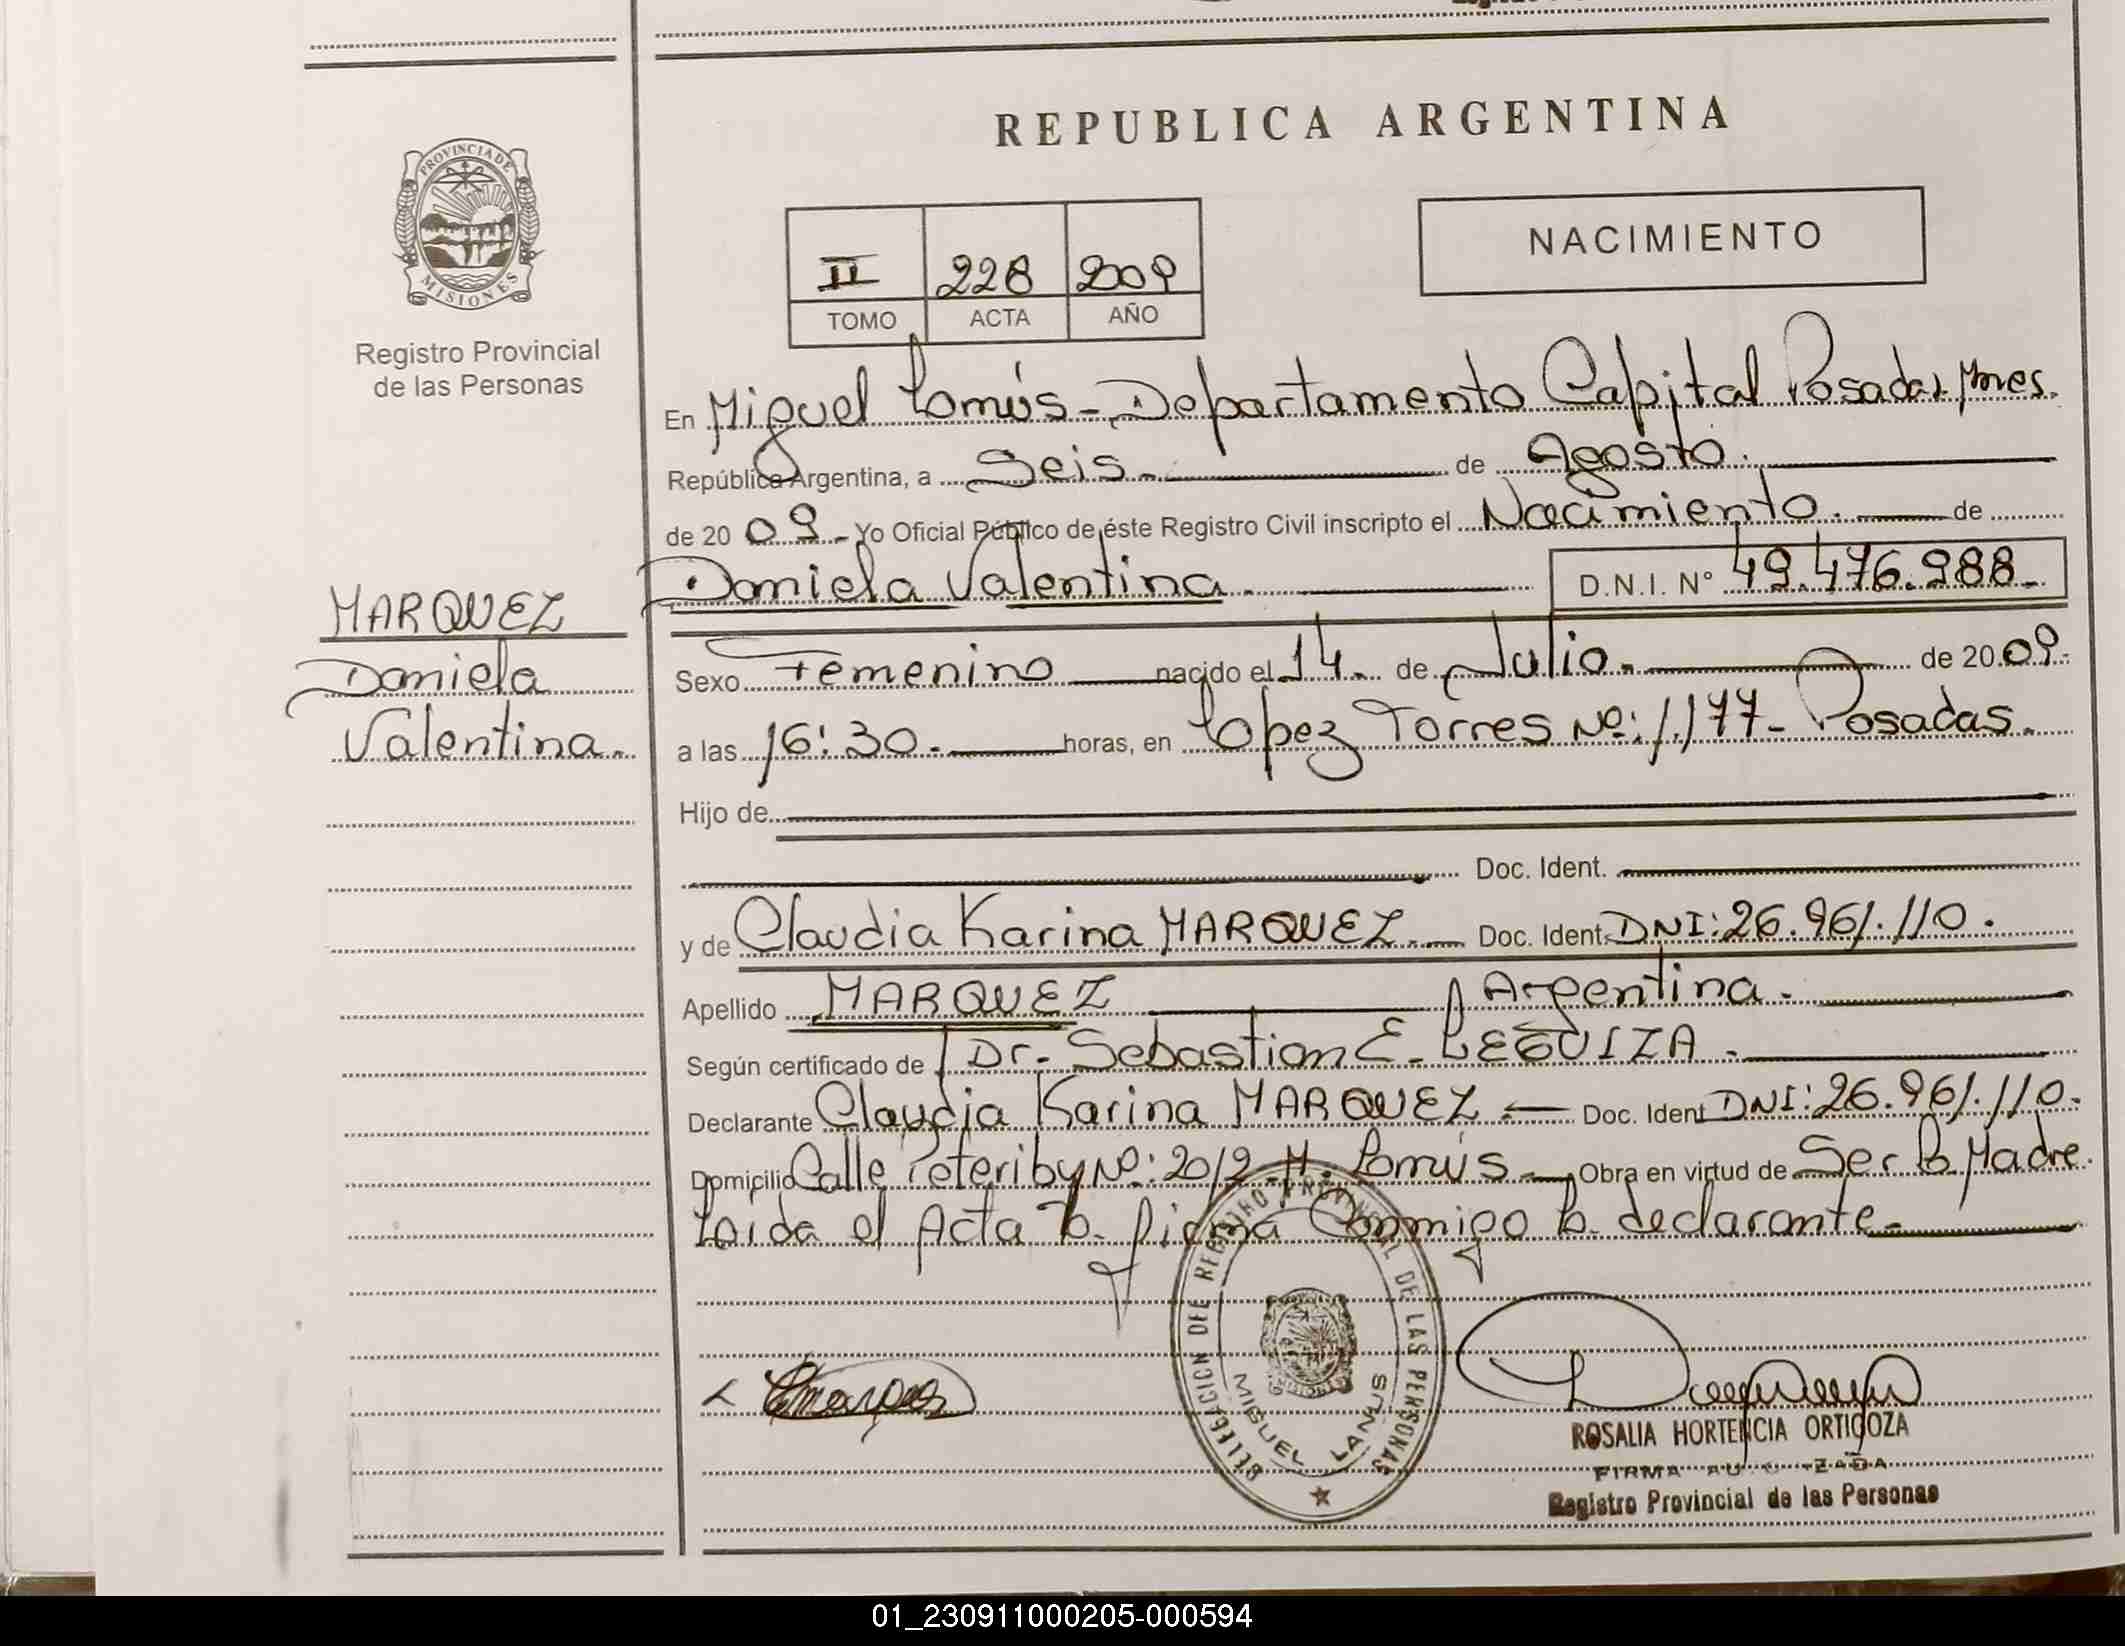 REPUBLICA ARGENTINA
PROVINCIA DE
MISIONES
Registro Provincial
de las Personas
II 228 2009
TOMO ACTA AÑO
NACIMIENTO
En Miguel Lanús - Departamento Capital Posadas, Mnes.
República Argentina, a Seis. de Agosto.
de 20 09 - Yo Oficial Público de éste Registro Civil inscripto el Nacimiento. de
Daniela Valentina. D.N.I. Nº 49.476.988-
MARQUEZ
Daniela
Valentina.
Sexo Femenino nacido el 14. de Julio. de 20.09.
a las 16:30. horas, en Lopez Torres Nº: 1.177- Posadas.
Hijo de
Doc. Ident.
y de Claudia Karina MARQUEZ. Doc. Ident. DNI: 26.961.110.
Apellido MARQUEZ Argentina.
Según certificado de Dr. Sebastian E. LEGUIZA.
Declarante Claudia Karina MARQUEZ. Doc. Ident DNI: 26.961.110.
Domicilio Calle Peteriby Nº: 2012 - M. Lanús. Obra en virtud de Ser la Madre.
Leída el Acta la firma Conmigo la declarante.
DELEGACION DEL REGISTRO PROVINCIAL DE LAS PERSONAS
MIGUEL LANUS
ROSALIA HORTENCIA ORTIGOZA
FIRMA
Registro Provincial de las Personas
01_230911000205-000594